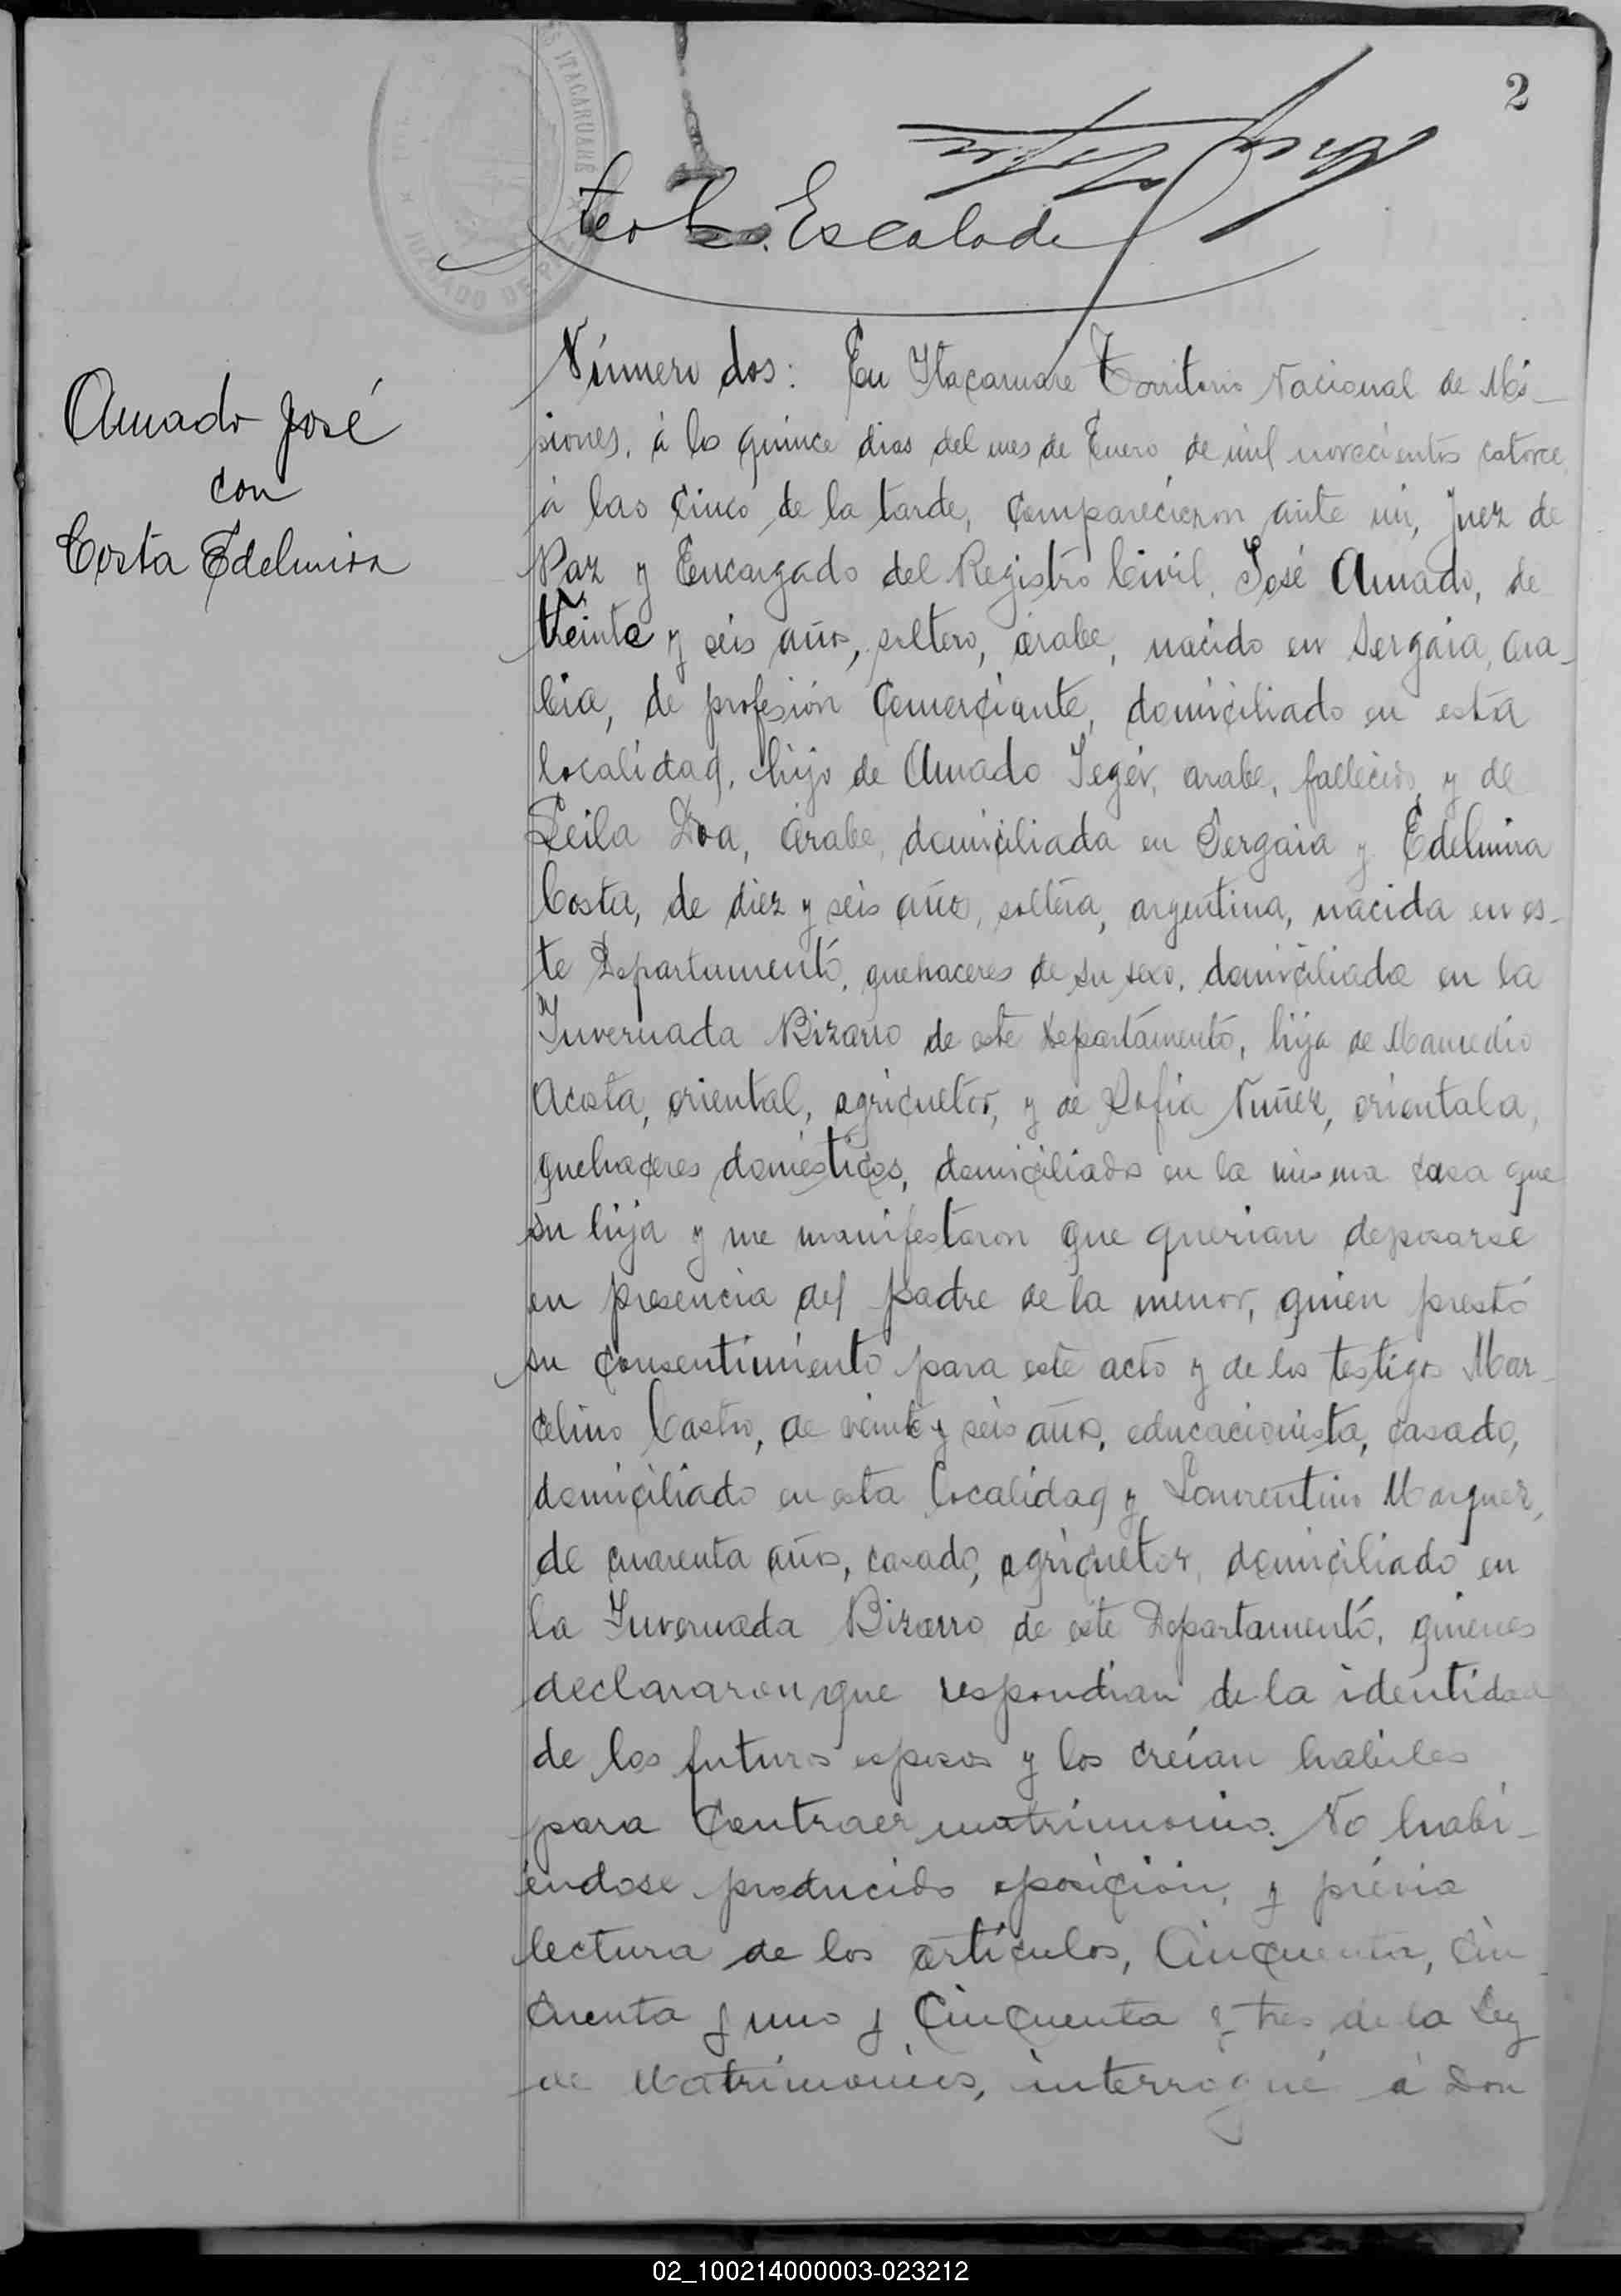 2
ITACARUARÉ
JUZGADO DE PAZ
Escalada
Amado José
con
Costa Edelmira
Número dos: En Itacaruare Territorio Nacional de Mi-
siones, á los quince dias del mes de Enero de mil novecientos catorce,
á las cinco de la tarde, comparecieron ante mi, Juez de
Paz y Encargado del Registro Civil, José Amado, de
treinta y seis años, soltero, árabe, nacido en Sergaia, Ara-
bia, de profesión Comerciante, domiciliado en esta
localidad, hijo de Amado Seger, arabe, fallecido, y de
Leila Doa, árabe, domiciliada en Sergaia y Edelmira
Costa, de diez y seis años, soltera, argentina, nacida en es-
te Departamento, quehaceres de su sexo, domiciliada en la
Invernada Bizarro de este Departamento, hija de Mamedio
Acosta, oriental, agricultor, y de Sofia Nuñez, orientala,
quehaceres domésticos, domiciliados en la misma casa que
su hija y me manifestaron que querian deposarse
en presencia del padre de la menor, quien prestó
su consentimiento para este acto y de los testigos Mar-
celino Castro, de veinte y seis años, educacionista, casado,
domiciliado en esta localidad y Laurentino Marquez,
de cuarenta años, casado, agricultor, domiciliado en
la Invernada Bizarro de este Departamento, quienes
declararon que respondian de la identidad
de los futuros esposos y los creían habiles
para contraer matrimonio. No habi-
endose producido oposición, y prévia
lectura de los artículos, Cincuenta, Cin-
cuenta y uno y Cincuenta y tres de la Ley
de Matrimonios, interrogué á Don
02_100214000003-023212